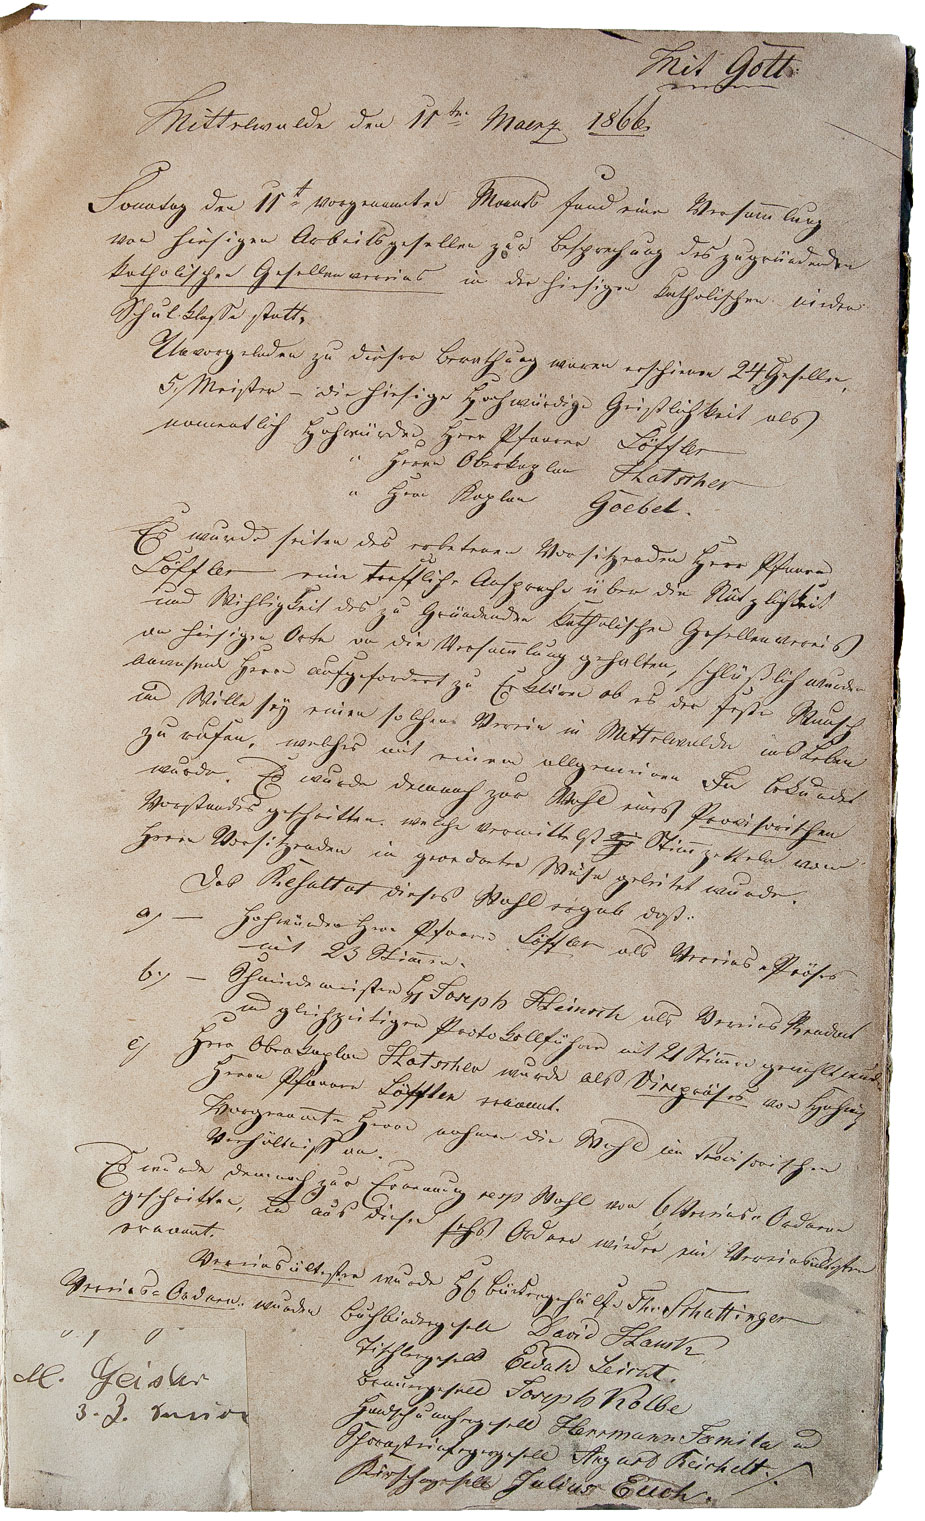 Mit Gott.
Mittelwalde den 11ten Maerz 1866.
Sonntag den 11t vorgenannten Monats fand eine Versammlung
von hiesigen Arbeitsgesellen zur Besprechung des zugründenden
katholischen Gesellenvereins in der hiesigen katholischen niedern
Schulklasse statt.
zu dieser Berathung waren erschienen 24 Gesellen,
5 Meister – die hiesige Hochwürdige Geistlichkeit als
namentlich Hochwürden Herr Pfarrer Löffler
" Herr Oberkaplan Hatscher
" Herr Kaplan Goebel.
Es wurde seiten des erbetenen Vorsitzenden Herr Pfarrer
Löffler eine treffliche Ansprache über die Nützlichkeit
und Wichtigkeit des zu Gründenden katholischen Gesellenvereins
an hiesigen Orte an die Versammlung gehalten, schlüßlich wurden
anwesende Herrn aufgefordert zu Erklären ob es der feste Wunsch
und Wille sey einen solchen Verein in Mittelwalde ins Leben
zu rufen, welches mit einem allgemeinen Ja bekundet
wurde. Es wurde demnach zur Wahl eines Provisorischen
Vorstandes geschritten. welche vermittelst Stimmzetteln vom
Herrn Vorsitzenden in geordneter Weise geleitet wurde.
Das Resultat dieser Wahl ergab daß:
a) – Hochwürden Herr Pfarrer Löffler als Vereins-Präses
mit 23 Stimmen.
b) – Schneidermeister H. Joseph Heinsch als Vereins Rendant
und gleichzeitigen Protokollführer mit 21 Stimmen gewählt wurde.
c) Herr Oberkaplan Hatscher wurde als Vicepräses von
Herrn Pfarrer Löffler ernannt.
Vorgenannte Herrn nahmen die Wahl im Provisorischen
Verhältniss an.
Es wurde demnach zur Ernennung resp Wahl von 6 Vereins-Ordnern
geschritten, und aus diesen sechs Ordnern wieder ein Vereinsältester
ernannt.
Vereinsältester wurde H. Schattinger
Vereins-Ordner wurden Buchbindergesell David Hauck
Tischlergesell Ewald Leicht.
Brauergesell Joseph Kolbe
Handschumachergesell Herrmann Tomita und
Schornsteinfegergesell August Reichelt.
Kürschnergesell Julius Euch.
M. Geisler
z. Z. Senior